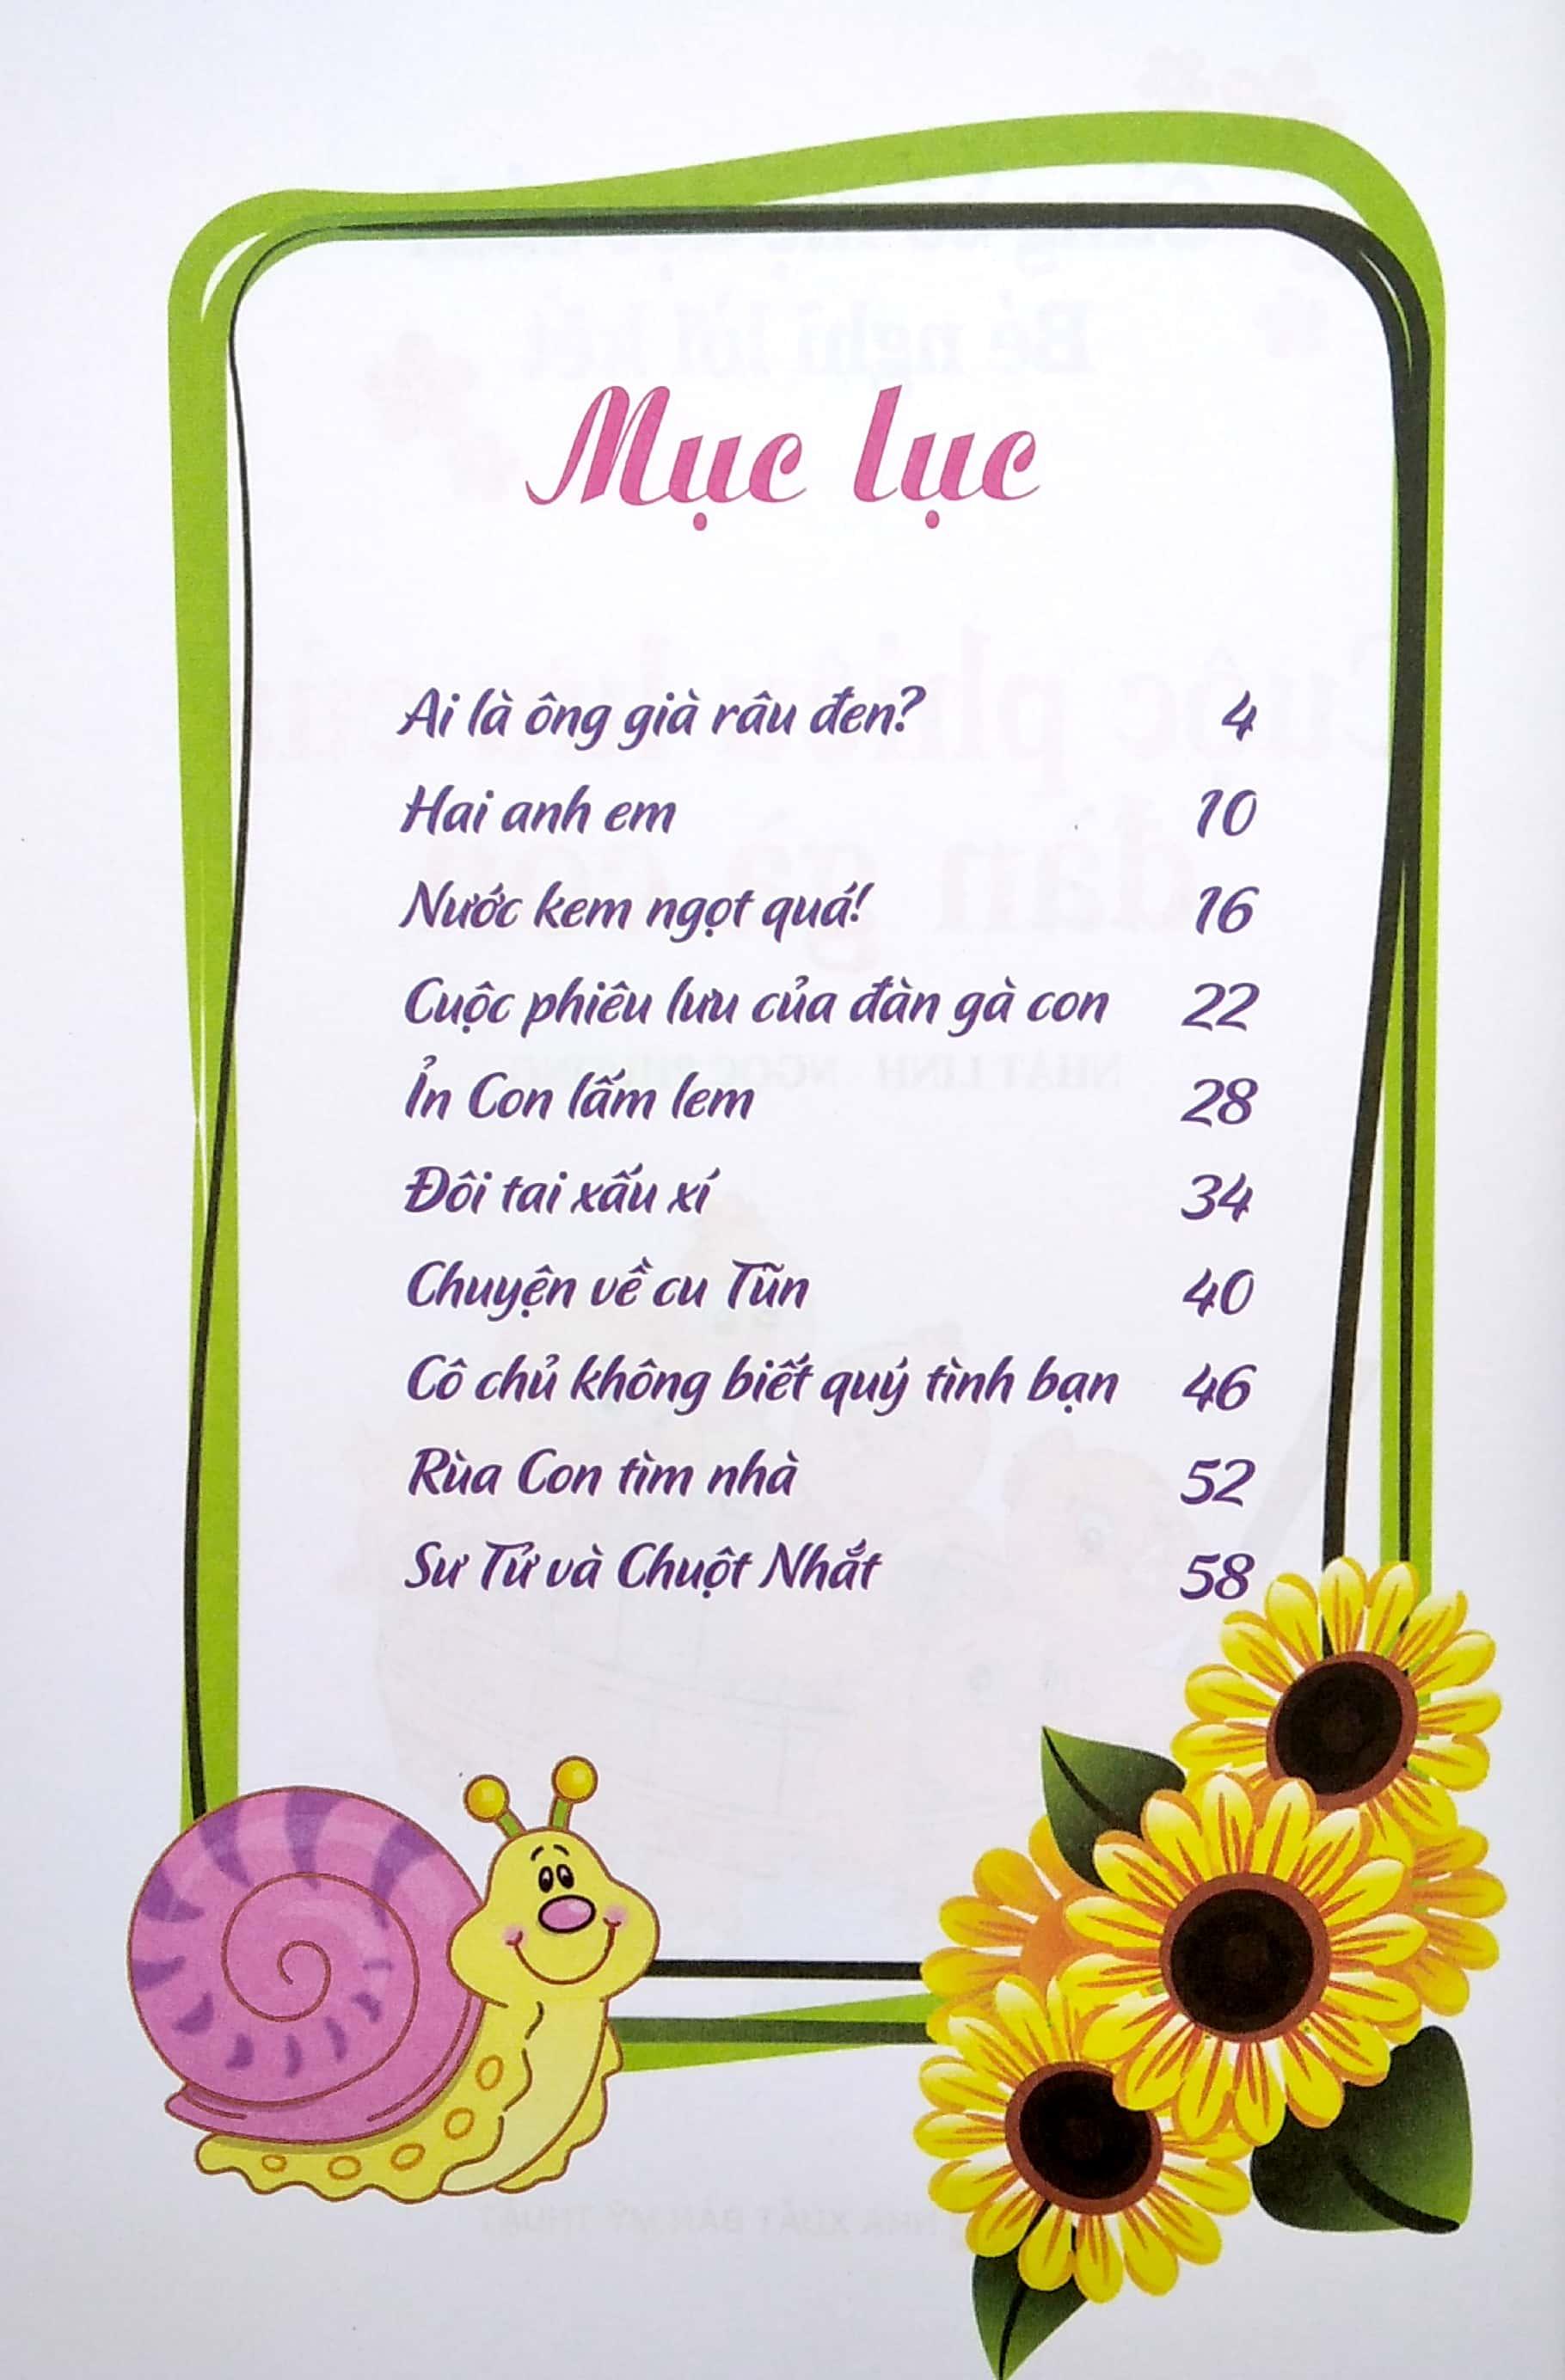 Mục lục
Ai là ông già râu đen? 4
Hai anh em 10
Nước kem ngọt quá! 16
Cuộc phiêu lưu của đàn gà con 22
Ỉn Con lấm lem 28
Đôi tai xấu xí 34
Chuyện về cu Tũn 40
Cô chủ không biết quý tình bạn 46
Rùa Con tìm nhà 52
Sư Tử và Chuột Nhắt 58